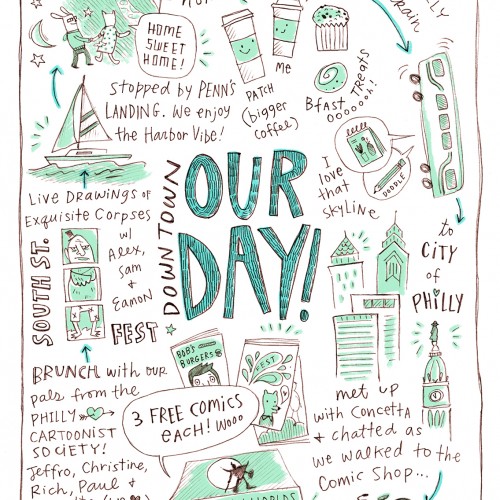 HOME
SWEET
HOME!
stopped by PENN'S
LANDING. We enjoy
the Harbor Vibe!
me
PATCH
(bigger
coffee)
Bfast
TREATS
Ooooooh!
DOODLE
I
love
that
skyline
to
CITY
of
PHILLY
met up
with Concetta
+ chatted as
we walked to the
Comic Shop...
DOWNTOWN
OUR
DAY!
BOB'S
BURGERS
FEST
3 FREE COMICS
EACH! Wooo
WORLDS
BRUNCH with our
pals from the
PHILLY
CARTOONIST
SOCIETY!
Jeffro, Christine,
Rich, Paul +
SOUTH ST.
FEST
Live Drawings of
Exquisite Corpses
w/
Alex,
Sam
+
Eamon